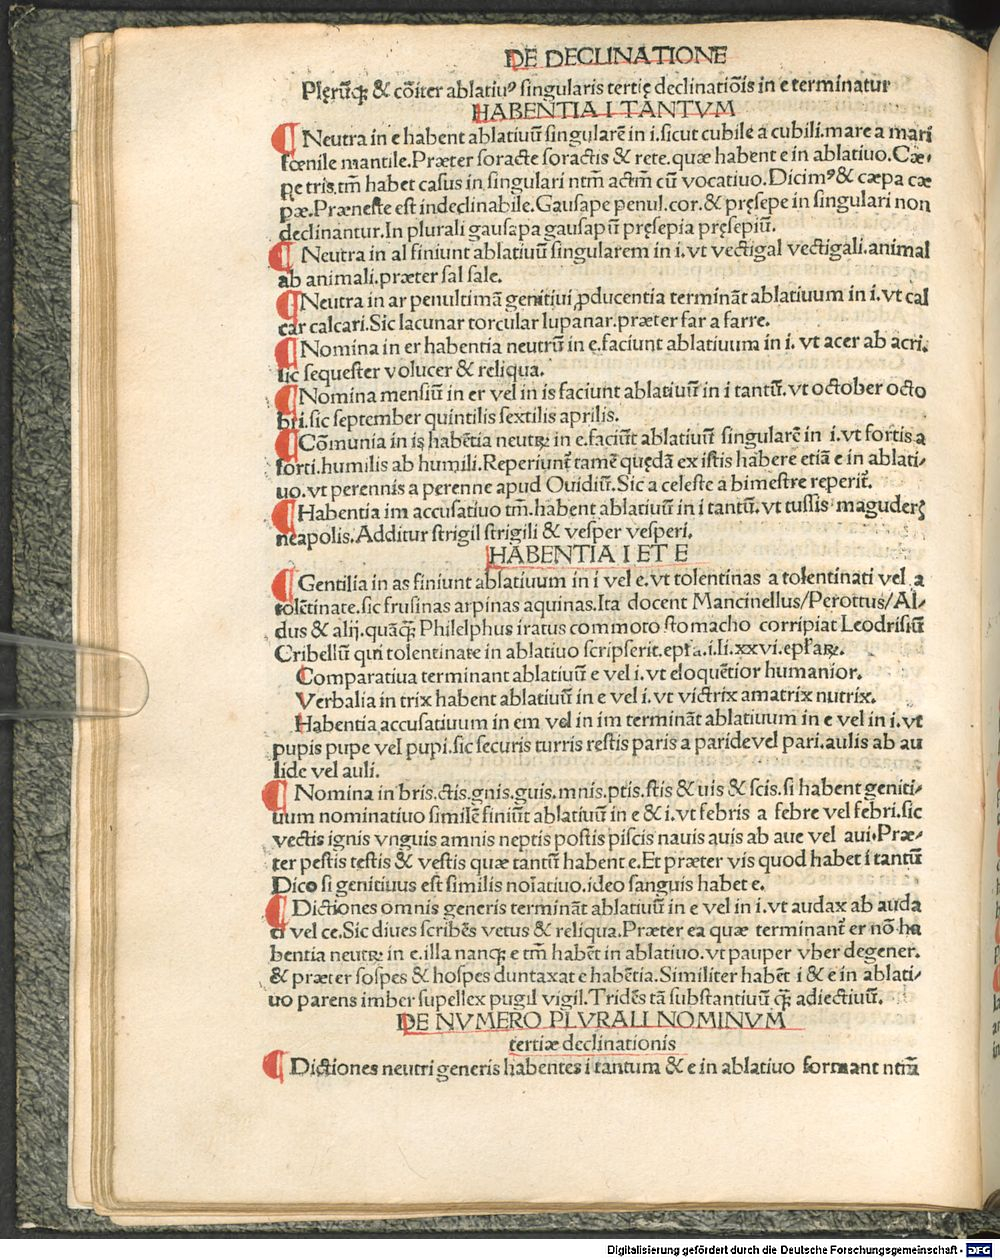 DE DECLINATIONE
Plęrūq; & cōiter ablatiuꝰ singularis tertię declinatiōis in e terminatur
HABENTIA I TANTVM
¶ Neutra in e habent ablatiuū singularē in i.sicut cubile a cubili.mare a mari
fœnile mantile.Præter soracte soractis & rete.quæ habent e in ablatiuo.Cæ-
pe tris.tm̄ habet casus in singulari ntm̄ actm̄ cū vocatiuo.Dicimꝰ & cæpa cæ
pæ.Præneste est indeclinabile.Gausape penul.cor.& pręsepe in singulari non
declinantur.In plurali gausapa gausapū pręsepia pręsepiū.
¶ Neutra in al finiunt ablatiuū singularem in i.vt vectigal vectigali.animal
ab animali.præter sal sale.
¶ Neutra in ar penultimā genitiui ꝓducentia termināt ablatiuum in i.vt cal
car calcari.Sic lacunar torcular lupanar.præter far a farre.
¶ Nomina in er habentia neutrū in e.faciunt ablatiuum in i. vt acer ab acri.
sic sequester volucer & reliqua.
¶ Nomina mensiū in er vel in is faciunt ablatiuū in i tantū.vt october octo
bri.sic september quintilis sextilis aprilis.
¶ Cōmunia in is habētia neutꝝ in e.faciūt ablatiuū singularē in i.vt fortis a
forti.humilis ab humili.Reperiunt̄ tamē quędā ex istis habere etiā e in ablati-
uo.vt perennis a perenne apud Ouidiū.Sic a celeste a bimestre reperit̄.
¶ Habentia im accusatiuo tm̄.habent ablatiuū in i tantū.vt tussis maguderis
neapolis.Additur strigil strigili & vesper vesperi.
HABENTIA I ET E
¶ Gentilia in as finiunt ablatiuum in i vel e.vt tolentinas a tolentinati vel a
tolētinate.sic frusinas arpinas aquinas.Ita docent Mancinellus/Perottus/Al-
dus & alij.quāq; Philelphus iratus commoto stomacho corripiat Leodrisiū
Cribellū qui tolentinate in ablatiuo scripserit.epła.i.li.xxvi.epłaꝝ.
Comparatiua terminant ablatiuū e vel i.vt eloquētior humanior.
Verbalia in trix habent ablatiuū in e vel i.vt victrix amatrix nutrix.
Habentia accusatiuum in em vel in im termināt ablatiuum in e vel in i.vt
pupis pupe vel pupi.sic securis turris restis paris a paride vel pari.aulis ab au
lide vel auli.
¶ Nomina in bris.ctis.gnis.guis.mnis.ptis.stis & uis & scis.si habent geniti-
uum nominatiuo similē finiūt ablatiuū in e & i.vt febris a febre vel febri.sic
vectis ignis vnguis amnis neptis postis piscis nauis auis ab aue vel aui.Præ-
ter pestis testis & vestis quæ tantū habent e.Et præter vis quod habet i tantū
Dico si genitiuus est similis noīatiuo.ideo sanguis habet e.
¶ Dictiones omnis generis termināt ablatiuū in e vel in i.vt audax ab auda
ci vel ce.Sic diues scribēs vetus & reliqua.Præter ea quæ terminant̄ er nō ha
bentia neutꝝ in e.illa nanq; e tm̄ habēt in ablatiuo.vt pauper vber degener.
& præter sospes & hospes duntaxat e habētia.Similiter habēt i & e in ablati-
uo parens imber supellex pugil vigil.Tridēs tā substantiuū q̄; adiectiuū.
DE NVMERO PLVRALI NOMINVM
tertiæ declinationis
¶ Dictiones neutri generis habentes i tantum & e in ablatiuo formant ntm̄
Digitalisierung gefördert durch die Deutsche Forschungsgemeinschaft - DFG